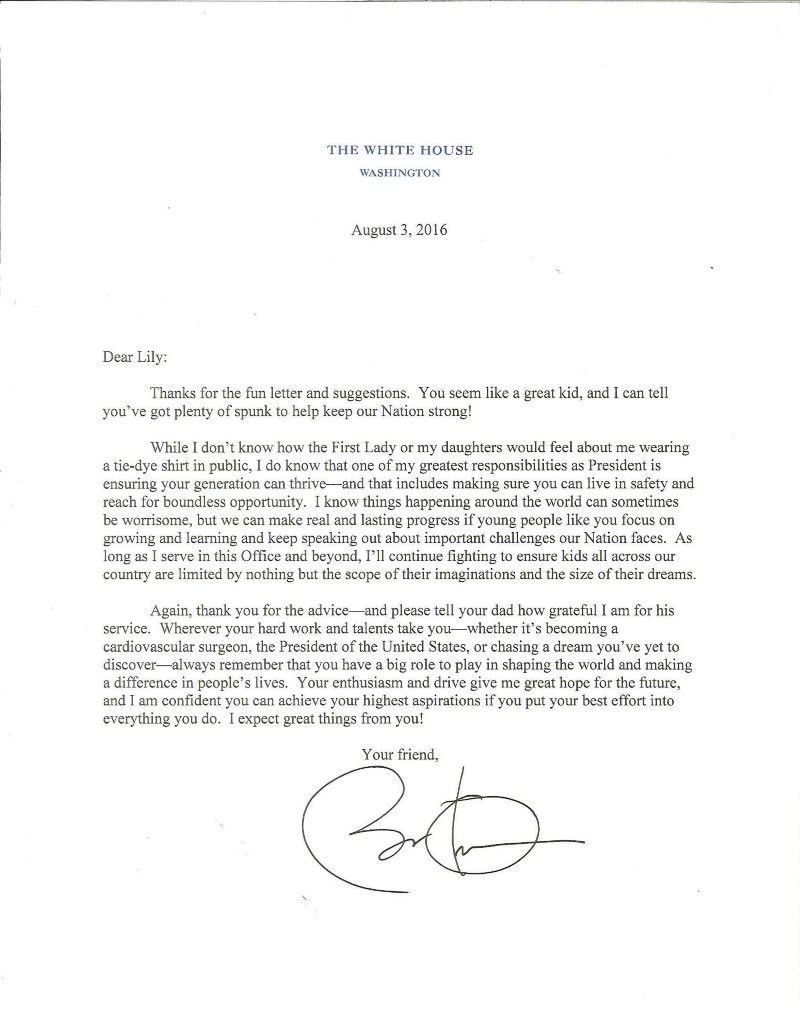 THE WHITE HOUSE
WASHINGTON
August 3, 2016
Dear Lily:
Thanks for the fun letter and suggestions.  You seem like a great kid, and I can tell
you've got plenty of spunk to help keep our Nation strong!
While I don't know how the First Lady or my daughters would feel about me wearing
a tie-dye shirt in public, I do know that one of my greatest responsibilities as President is
ensuring your generation can thrive—and that includes making sure you can live in safety and
reach for boundless opportunity.  I know things happening around the world can sometimes
be worrisome, but we can make real and lasting progress if young people like you focus on
growing and learning and keep speaking out about important challenges our Nation faces.  As
long as I serve in this Office and beyond, I'll continue fighting to ensure kids all across our
country are limited by nothing but the scope of their imaginations and the size of their dreams.
Again, thank you for the advice—and please tell your dad how grateful I am for his
service.  Wherever your hard work and talents take you—whether it's becoming a
cardiovascular surgeon, the President of the United States, or chasing a dream you've yet to
discover—always remember that you have a big role to play in shaping the world and making
a difference in people's lives.  Your enthusiasm and drive give me great hope for the future,
and I am confident you can achieve your highest aspirations if you put your best effort into
everything you do.  I expect great things from you!
Your friend,